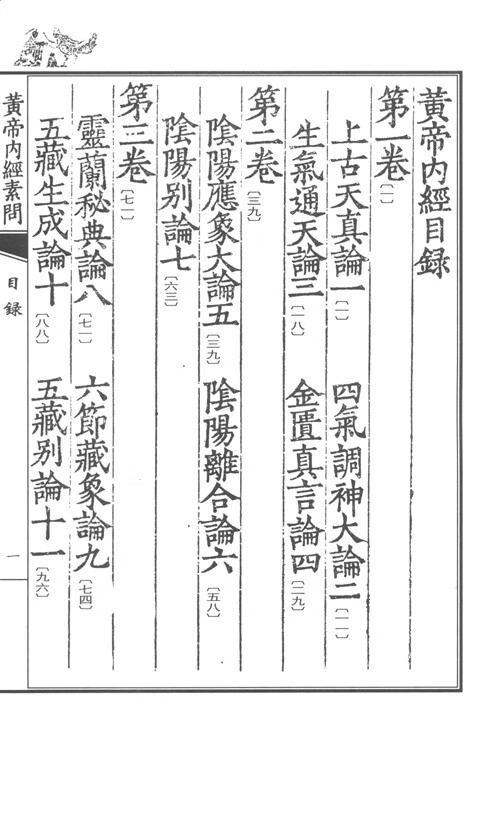 黃帝內經目録
第一卷〔一〕
上古天真論一〔一〕 四氣調神大論二〔一一〕
生氣通天論三〔一八〕 金匱真言論四〔二九〕
第二卷〔三九〕
陰陽應象大論五〔三九〕 陰陽離合論六〔五八〕
陰陽别論七〔六三〕
第三卷〔七一〕
靈蘭秘典論八〔七一〕 六節藏象論九〔七四〕
五藏生成論十〔八八〕 五藏别論十一〔九六〕
黃帝內經素問
目録
一